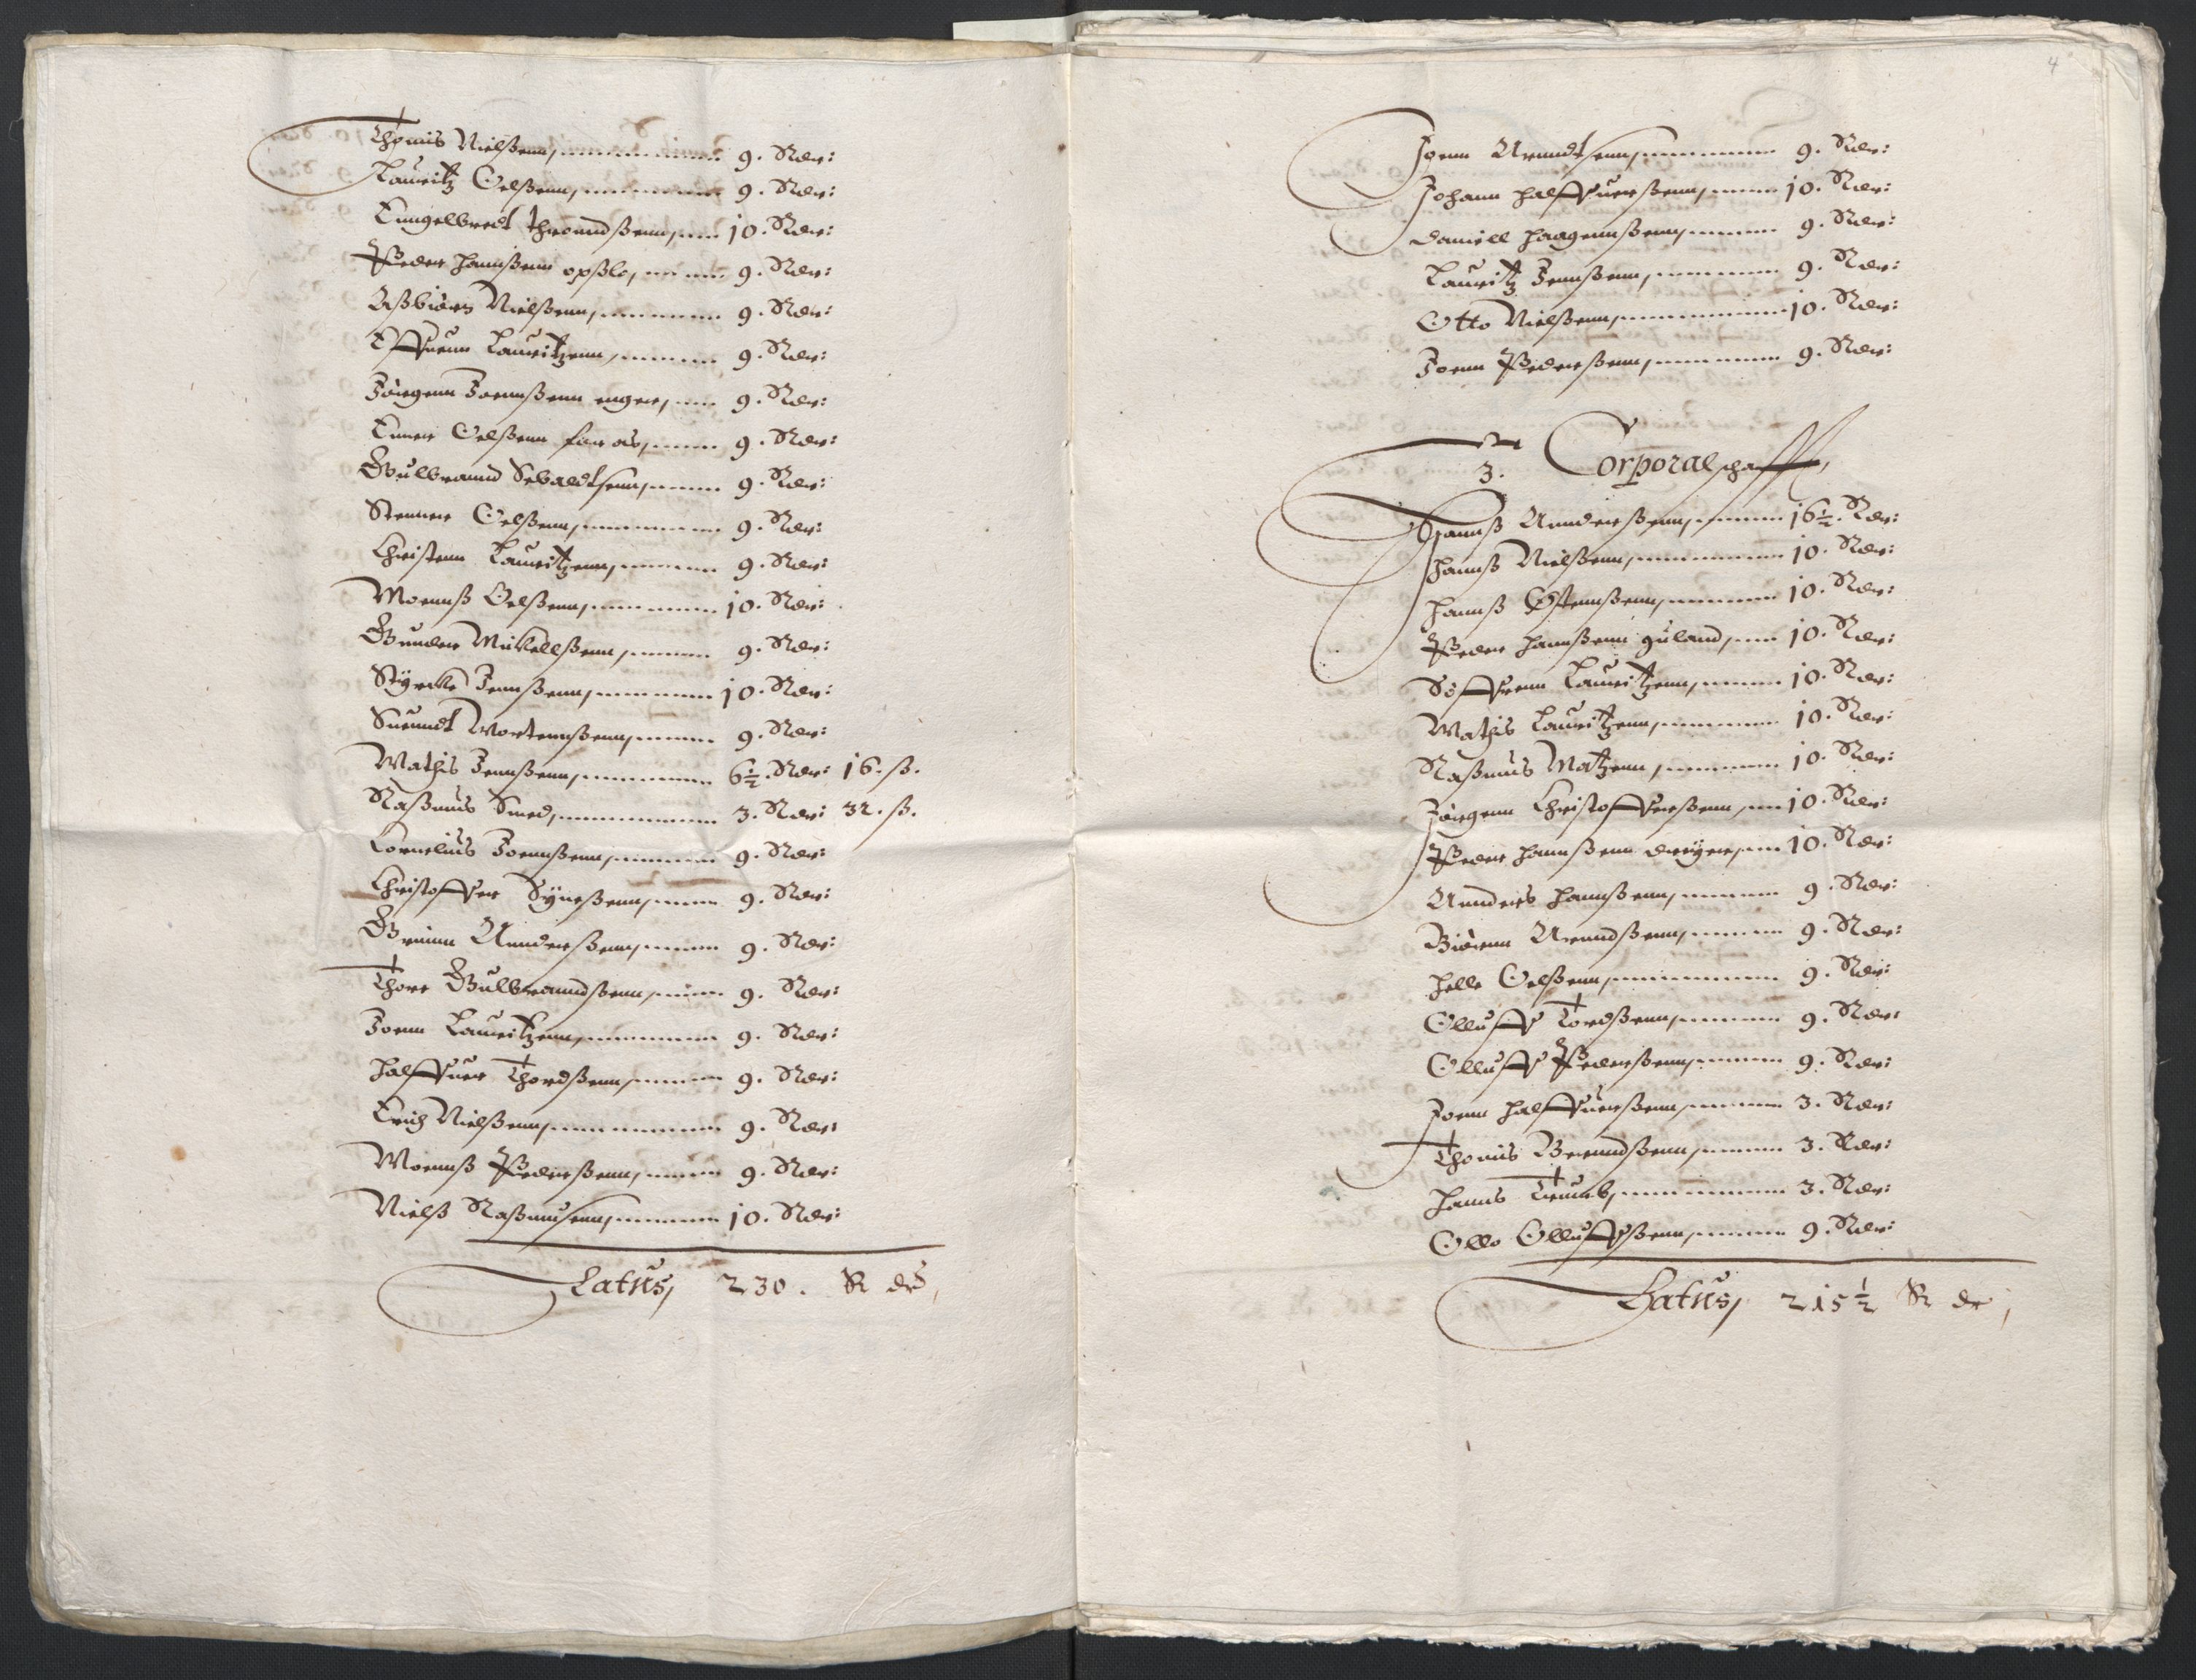 Thomis Nielßenn, 9. Rdr:
Lauritz Oelßenn, 9. Rdr:
Enngelbredt Throundßenn, 10. Rdr:
Peder Hannßenn opßlo, 9. Rdr:
Aßbiørn Nielßenn, 9. Rdr:
Effuenn Lauritzenn, 9. Rdr:
Jørgenn Joennßenn 9. Rdr:
Oelßenn 9. Rdr:
Gulbrannd Sebaldtsenn, 9. Rdr:
Stenner Oelßenn, 9. Rdr:
Christenn Lauritzenn, 9. Rdr:
Moennß Oelßenn, 10. Rdr:
Gunder Mickellßenn, 9. Rdr:
Styrcke Jennßenn, 10. Rdr:
Suenndt Mortennßenn, 9. Rdr:
Mathis Jennßenn, 6½. Rdr: 16. ß.
Raßmus Smed, 3. Rdr: 32. ß.
Cornelius Joennßenn, 9. Rdr:
Christoffer Syuerßenn, 9. Rdr:
Annderßenn, 9. Rdr:
Thore Gulbranndßenn, 9. Rdr:
Joenn Lauritzenn, 9. Rdr:
Halffuer Thordßenn, 9. Rdr:
Erich Nielßenn, 9. Rdr:
Moennß Pederßenn, 9. Rdr:
Nielß Raßmusenn, 10. Rdr:
Latus, 230. R dr,
4
Joenn Arundtsenn, 9. Rdr:
Johann Halffuerßenn, 10. Rdr:
Daniell Haagennßenn, 9. Rdr:
Lauritz Jennßenn, 9. Rdr:
Otto Nielßenn, 10. Rdr:
Joenn Pederßenn, 9. Rdr:
3. Corporalschafft,
Hannß Annderßenn, 16½. Rdr:
Hannß Nielßenn, 10. Rdr:
Hannß Østennßenn, 10. Rdr:
Peder Hannßenn guland, 10. Rdr:
Søffrenn Lauritzenn, 10. Rdr:
Mathis Lauritzenn, 10. Rdr:
Raßmus Matzenn, 10. Rdr:
Jørgenn Christofferßenn, 10. Rdr:
Peder Hannßenn dreyer, 10. Rdr:
Annders Hannßenn, 9. Rdr:
Biørnn Arundßenn, 9. Rdr:
Helle Oelßenn, 9. Rdr:
Olluff Tordßenn, 9. Rdr:
Olluff Pederßenn, 9. Rdr:
Joenn Halffuerßenn, 3. Rdr:
Thomis Berndßenn, 3. Rdr:
Hanns 3. Rdr:
Olle Olluffßenn, 9. Rdr:
Latus, 215½ R dr,